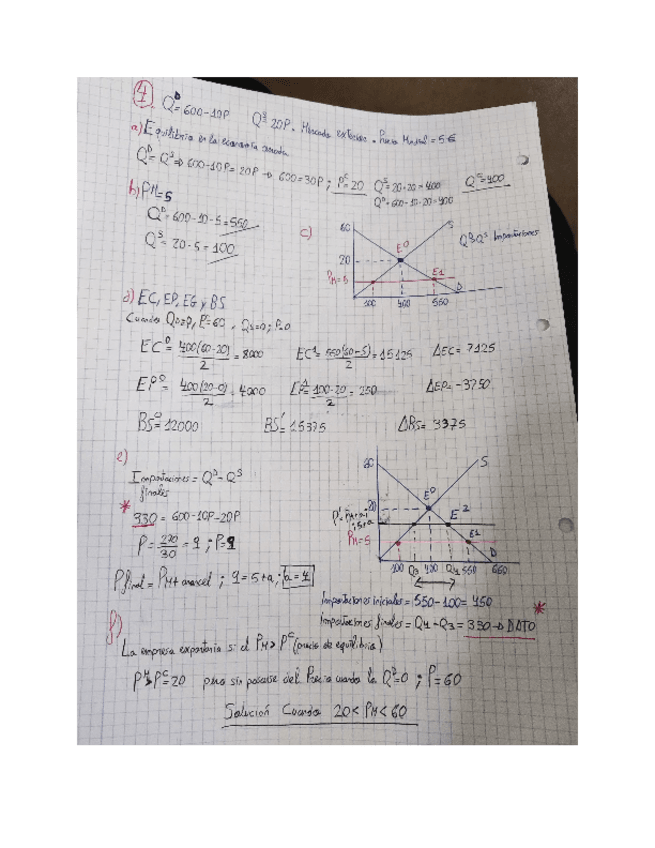 4 Q^D = 600-10P Q^S = 20P. Mercado exterior. Precio Mundial = 5€
a) Equilibrio en la economía cerrada
Q^D = Q^S ⇒ 600-10P = 20P → 600 = 30P ; P^C = 20 Q^S = 20·20 = 400 Q^C = 400
Q^D = 600-10·20 = 400
b) PM = 5
Q^D = 600-10·5 = 550
Q^S = 20·5 = 100
c)
60
S
E^0
20
PM = 5
E1
D
100 400 550
Importaciones
d) EC, EP, EG y BS
Cuando Q_D = 0, P = 60 . Q_S = 0 ; P = 0
EC^0 = 400(60-20)/2 = 8000 EC^1 = 550(60-5)/2 = 15125 ΔEC = 7125
EP^0 = 400(20-0)/2 = 4000 100·20/2 = 250 ΔEP = -3750
BS^0 = 12000 BS^1 = 15375 ΔBS = 3375
e)
Importaciones = Q^D - Q^S
finales
* 330 = 600-10P-20P
P = 270/30 = 9 ; P = 9
P final = PM + arancel ; 9 = 5+a ; a = 4
60
S
E^0
20
E^2
PM = 5
E1
D
100 Q3 400 Q4 550 600
Importaciones iniciales = 550-100 = 450
Importaciones finales = Q4 - Q3 = 330 → DATO *
f)
La empresa exportaría si el PM > P^C (precio de equilibrio)
P^M > P^C = 20 pero sin pasarse del Precio cuando la Q^D = 0 ; P = 60
Solución Cuando 20 < PM < 60